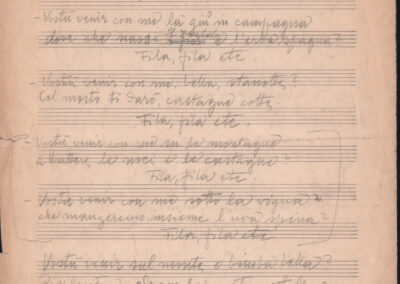 - Vostu venir con me là giù in campagna
dove che nasse e l'erba spagna?
Fila, fila etc.
- Vostu venir con me, bella, stanotte,?
Col morto ti darò, castagne cotte,
Fila, fila etc.
- Vostu venir con me su le montagne
a battere le noci e le castagne?
Fila, fila etc.
- Vostu venir con me sotto la vigna?
che mangeremo insieme l'uva
Fila, fila etc
Vostu venir sul monte o bimba bella?